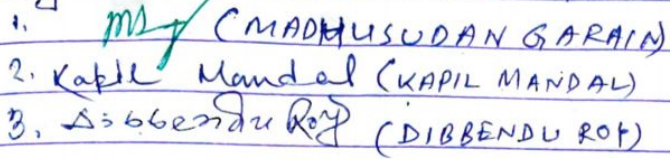 1. (MADHUSUDAN GARAIN)
2. Kapil Mandal (KAPIL MANDAL)
3. Dibbendu Roy (DIBBENDU ROY)